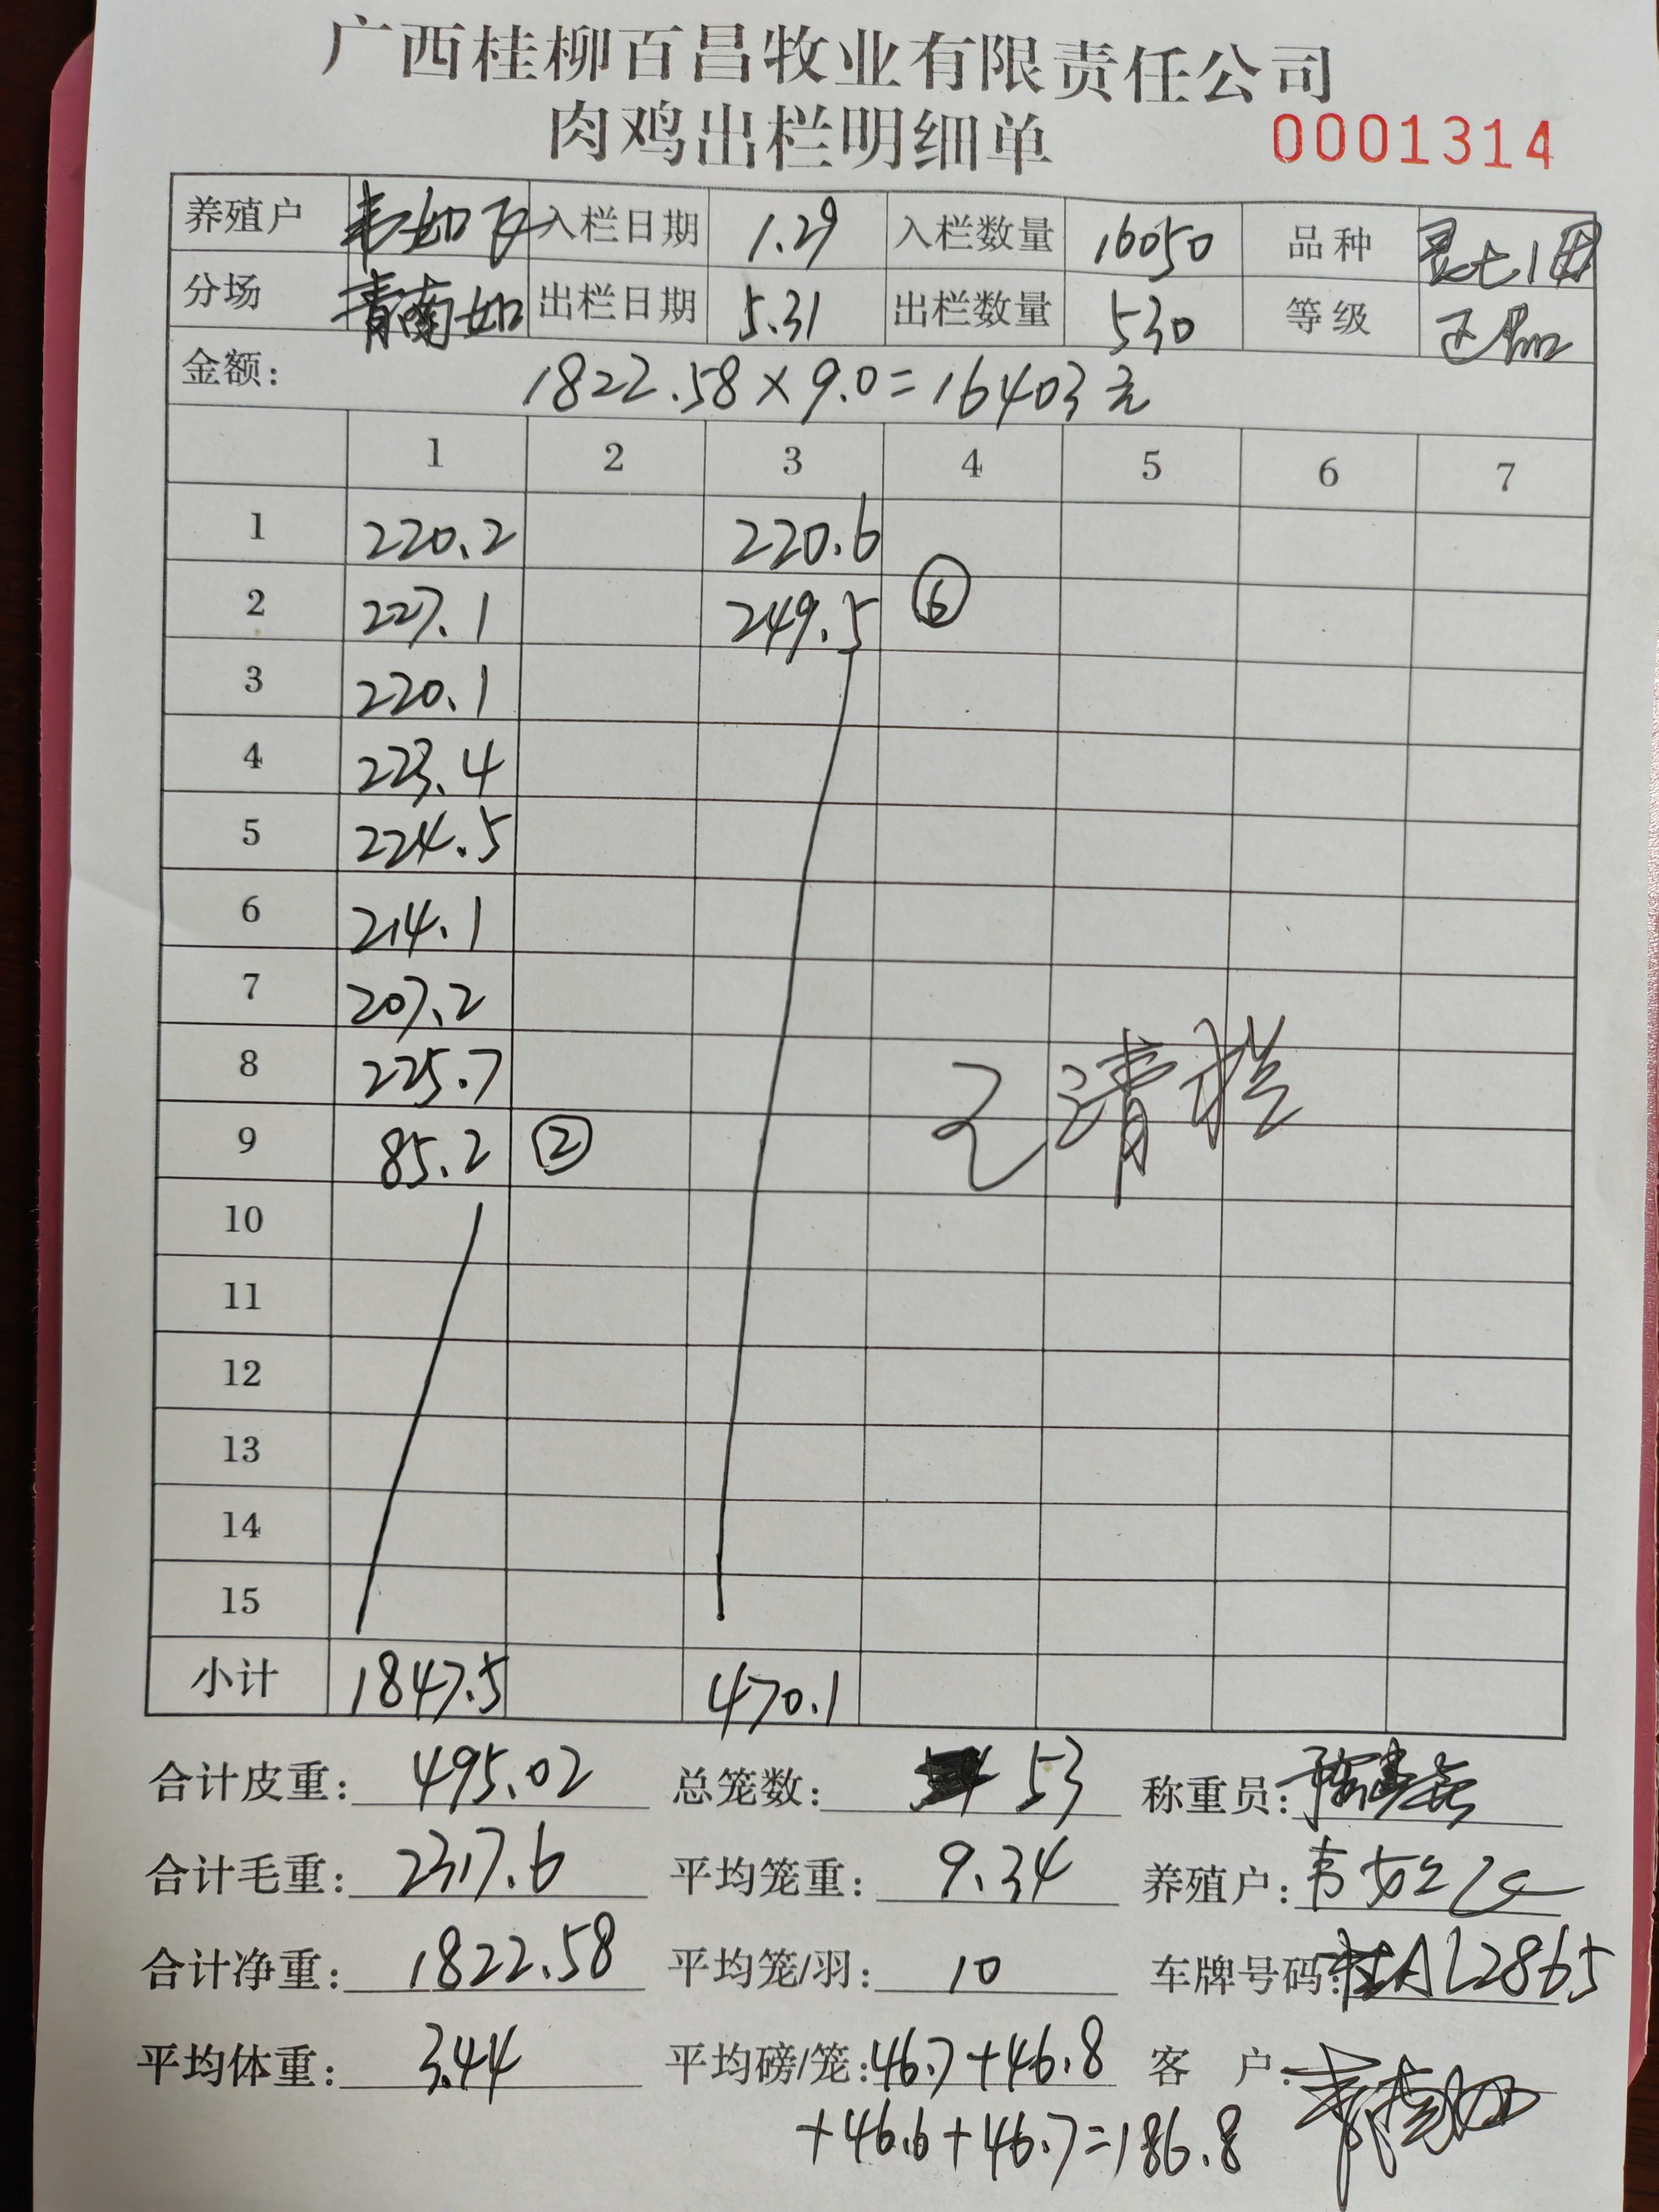 广西桂柳百昌牧业有限责任公司
肉鸡出栏明细单 0001314
养殖户 韦如 入栏日期 1.29 入栏数量 16050 品种
分场 出栏日期 5.31 出栏数量 530 等级 正品
金额: 1822.58×9.0=16403元
1 2 3 4 5 6 7
1 220.2 220.6
2 227.1 249.5 ⑥
3 220.1
4 223.4
5 224.5
6 214.1
7 207.2
8 225.7
9 85.2 ②
已清栏
10
11
12
13
14
15
小计 1847.5 470.1
合计皮重: 495.02 总笼数: 53 称重员:
合计毛重: 2317.6 平均笼重: 9.34 养殖户:
合计净重: 1822.58 平均笼/羽: 10 车牌号码: 桂AL2865
平均体重: 3.44 平均磅/笼: 46.7+46.8 客户:
+46.6+46.7=186.8